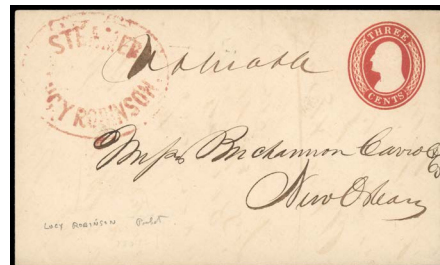 STEAMER
LUCY ROBINSON
Valuable
THREE
CENTS
Mess Buchannon Carroll & Co
New Orleans
LUCY ROBINSON Packet